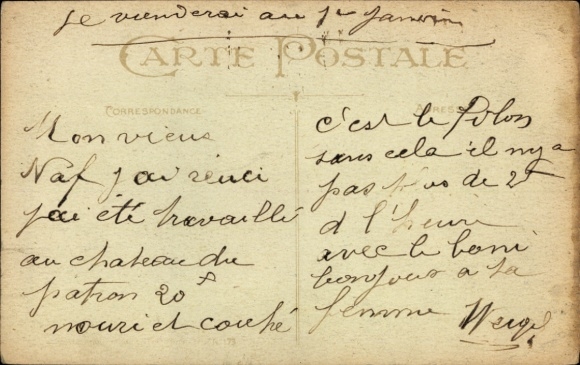 je vienderai au 1er Janvier
CARTE POSTALE
CORRESPONDANCE
Mon vieux
Naf j'ai réuci
j'ai été travaillé
au chateau du
patron 20f
nouri et couché
ADRESSE
c'est le filon
sans cela il ny a
pas plus de 2f
d l'heure
avec le boni
bonjour a ta
femme